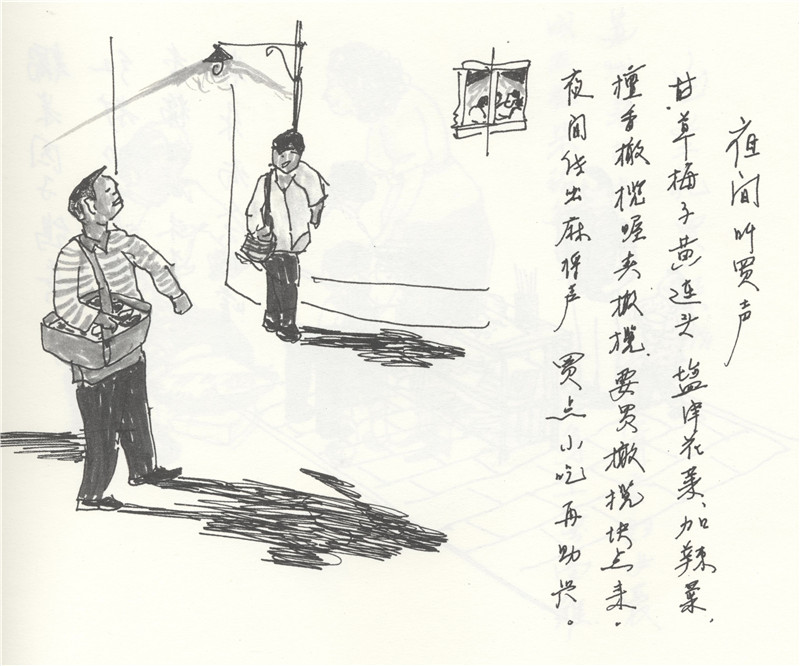 夜间叫買声
甘草梅子黄连头 塩津花菜、加辣菜,
檀香橄榄喔夹橄榄,要買橄榄块点来.
夜间传出麻将声 買点小吃再助兴。